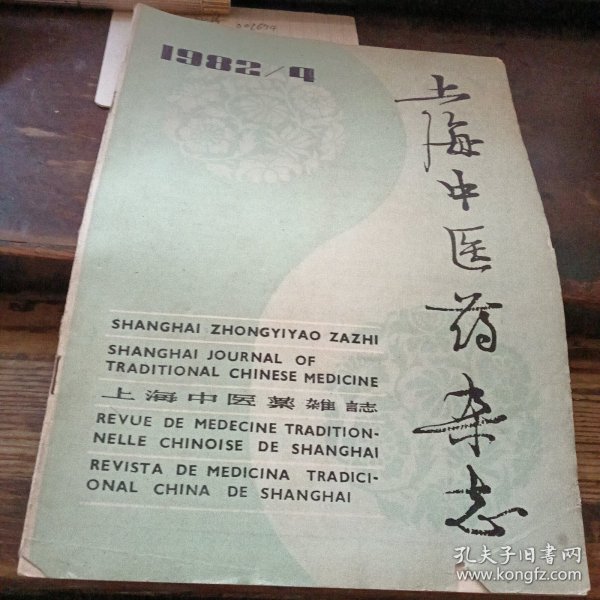 1982/4
上海中医药杂志
SHANGHAI ZHONGYIYAO ZAZHI
SHANGHAI JOURNAL OF
TRADITIONAL CHINESE MEDICINE
上海中医薬雑誌
REVUE DE MEDECINE TRADITION-
NELLE CHINOISE DE SHANGHAI
REVISTA DE MEDICINA TRADICI-
ONAL CHINA DE SHANGHAI
孔夫子旧书网
www.kongfz.com